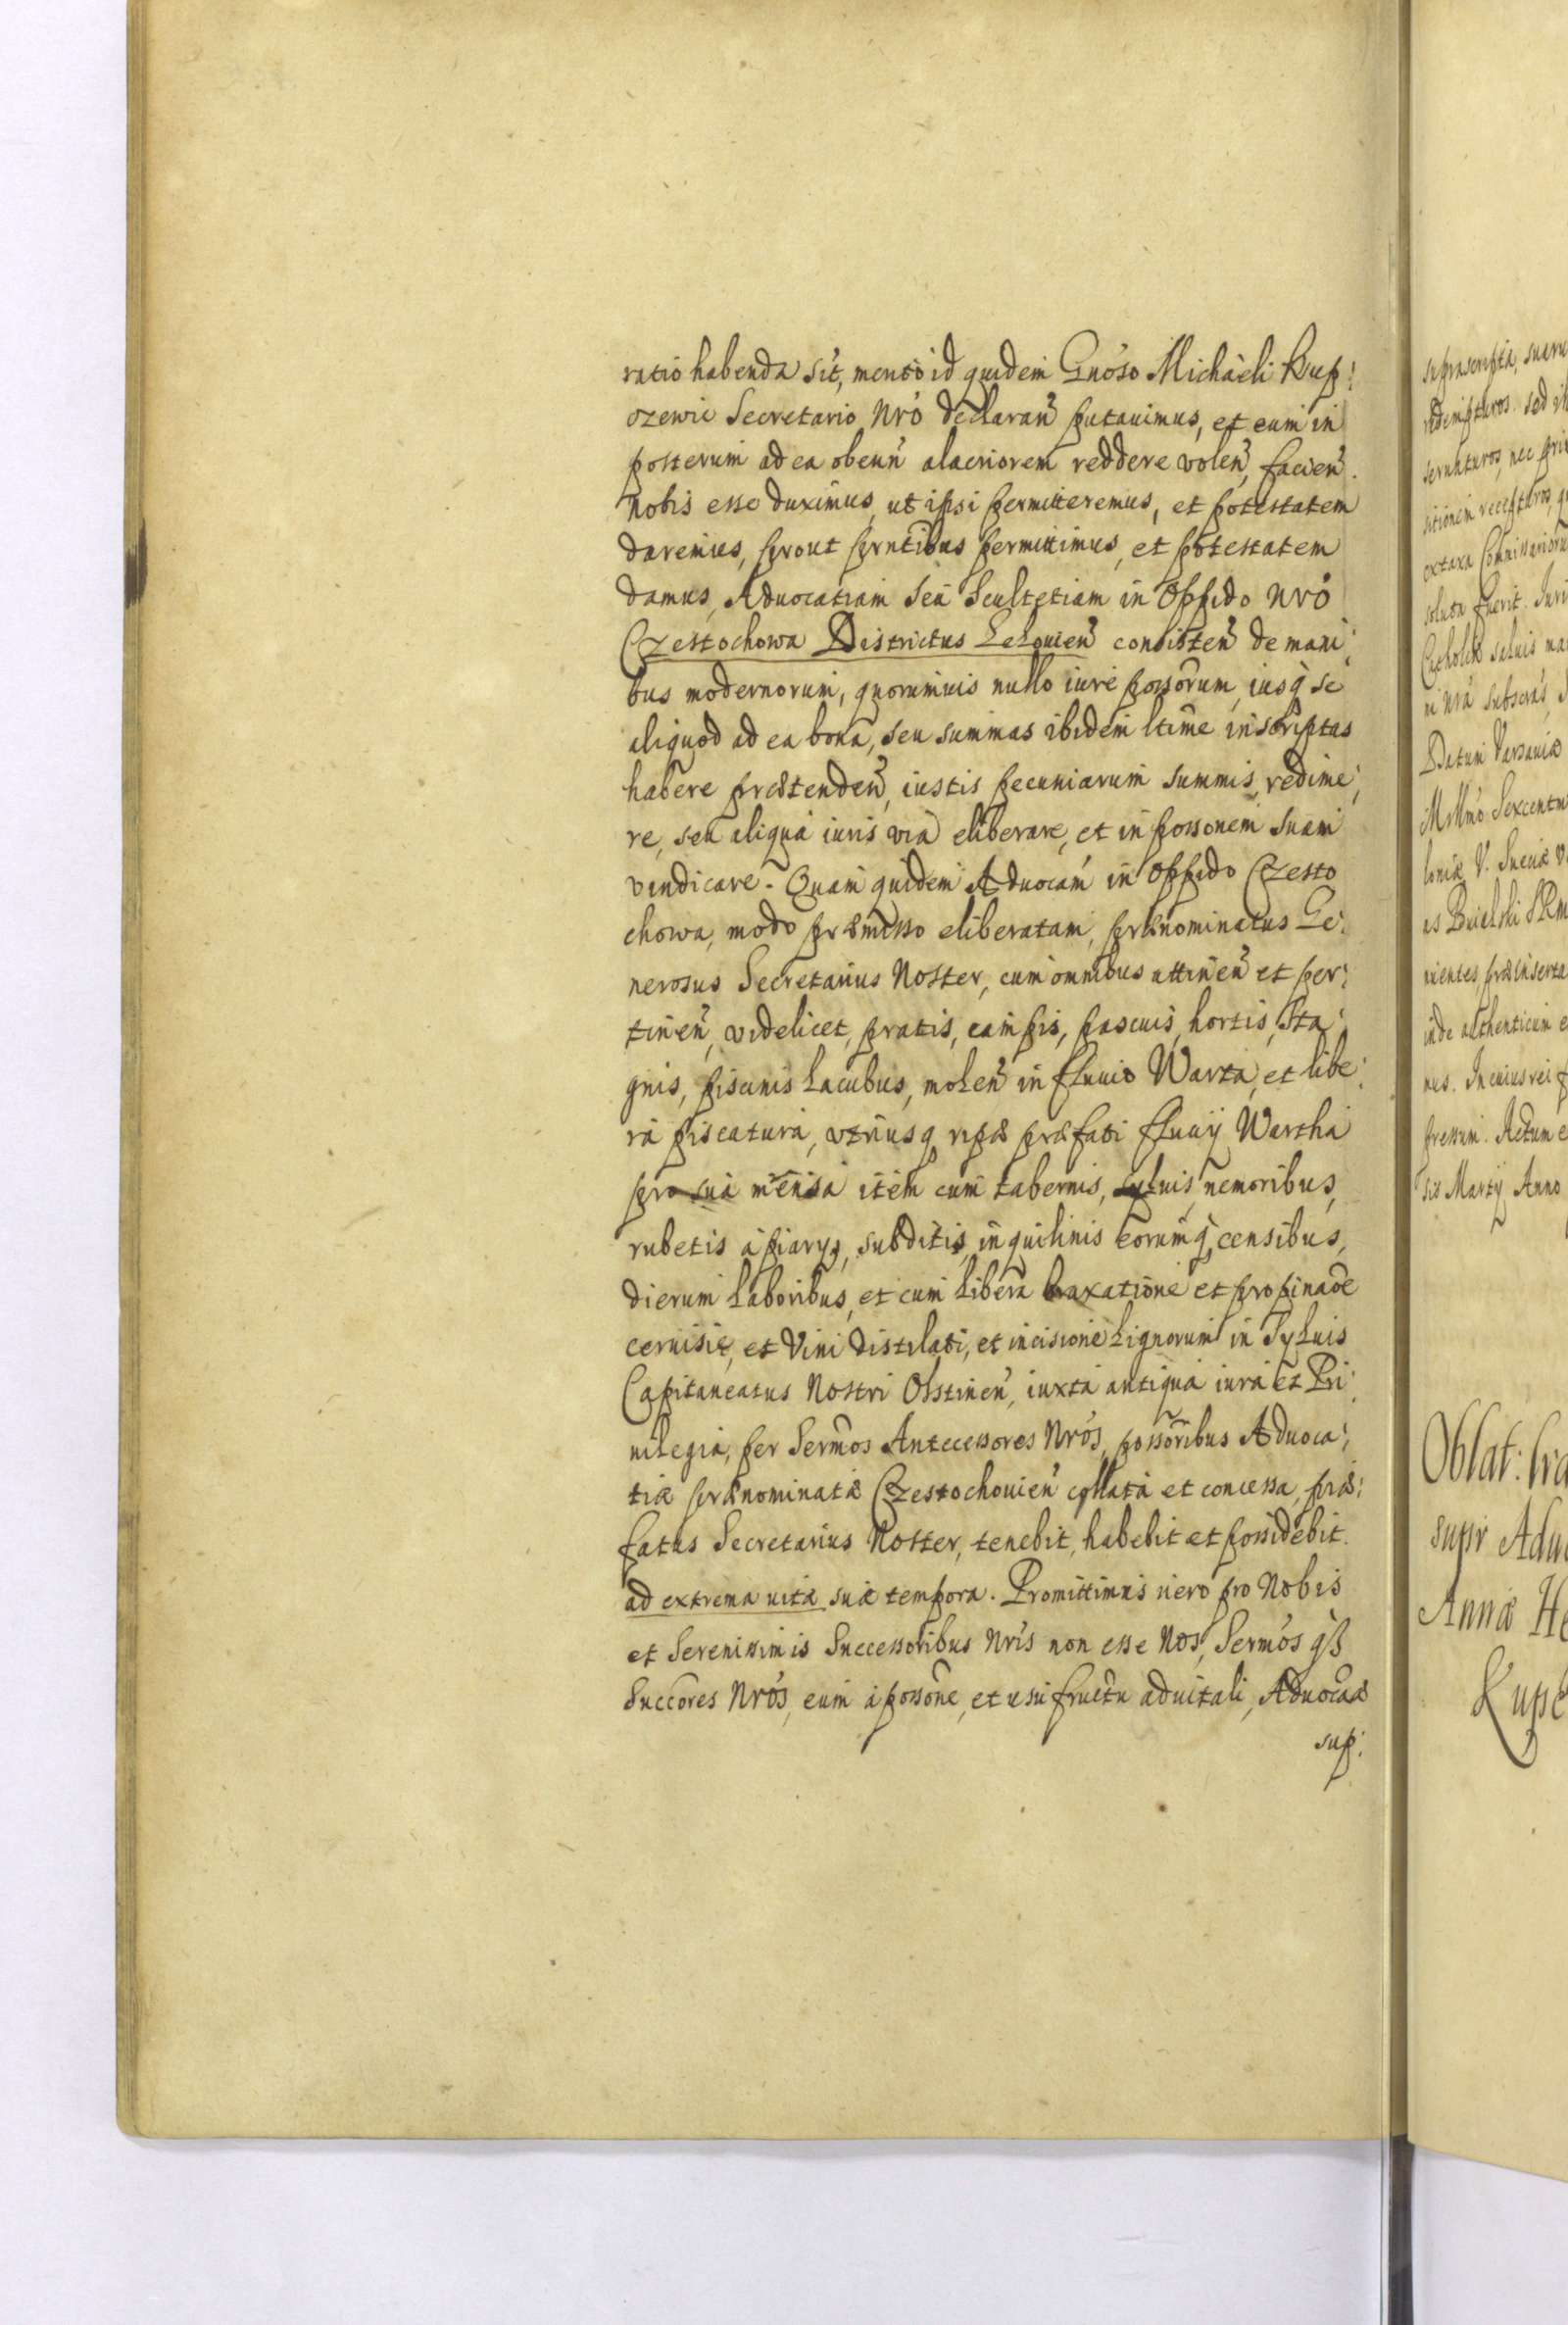 ratio habenda sit, mento id quidem Gnoso Michaeli Kup:
czewic Secretario Nro declaran̄ putauimus, et eum in
posterum ad ea obeun̄ alacriorem reddere volen̄, facien̄.
nobis esse duximus, ut ipsi permitteremus, et potestatem
daremus, prout prntibus permittimus, et potestatem
damus, Aduocatiam seu Scultetiam in Oppido Nro
Czestochowa Districtus Lelouien̄ consisten̄ de mani:
bus modernorum, quorumuis nullo iure possorum, iusq se
aliquod ad ea bona, seu summas ibidem ltime inscriptas
habere prætenden̄, iustis pecuniarum summis, redime:
re, seu aliqua iuris via eliberare, et in possonem suam
vindicare. Quam quidem Aduocam in Oppido Czesto
chowa, modo præmisso eliberatam, prænominatus Ge:
nerosus Secretarius Noster, cum omnibus attinen̄ et per:
tinen̄, videlicet, pratis, campis, pascuis, hortis, Sta:
gnis, piscinis Lacubus, molen̄ in fluuio Warta, et libe:
ra piscatura, vtriusq ripæ præfati fluuij Wartha
pro sua mensa item cum tabernis, syluis, nemoribus,
rubetis apiarys, subditis, inquilinis eorumq censibus,
dierum Laboribus, et cum Libera braxatione et propinaoe
ceruisie, et Vini distilati, et incisione Lignorum in Syluis
Capitaneatus Nostri Olstinen̄, iuxta antiqua iura et Pri:
uilegia, per Sermos Antecessores Nros, possoribus Aduoca:
tiæ prænominatæ Czestochouien̄ collata et concessa, præ:
fatus Secretarius Noster, tenebit, habebit et possidebit.
ad extrema uitæ suæ tempora. Promittimus uero pro Nobis
et Serenissimis Successoribus Nris non esse Nos, Sermos qß
Succores Nros, eum a possone, et usufructu aduitali, Aduocaæ
sup:
suprascripta, suaru
redempturos. sed
nec
sitionem recepturos,
extaxa Commissarioru
soluta fuerit. Juri
Catholicæ saluis
subscrás,
Datum Varsauiæ
Millmo Sexcentu
loniæ V. Sueciæ
præinserta
inde authenticum e
nus. In cuius rei f
pressum. Actum e
sis Martij Anno
Oblat:
supr Aduo
Annæ He
Kupc